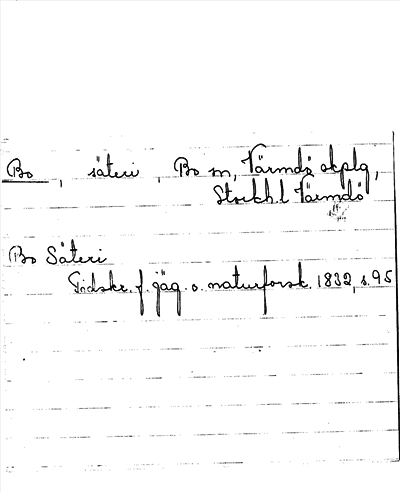 Bo, säteri, Bo sn, Värmdö skplg,
Stockh. l Värmdö
Bo Säteri
Tidskr. f. jäg. o. naturforsk. 1832, s. 95